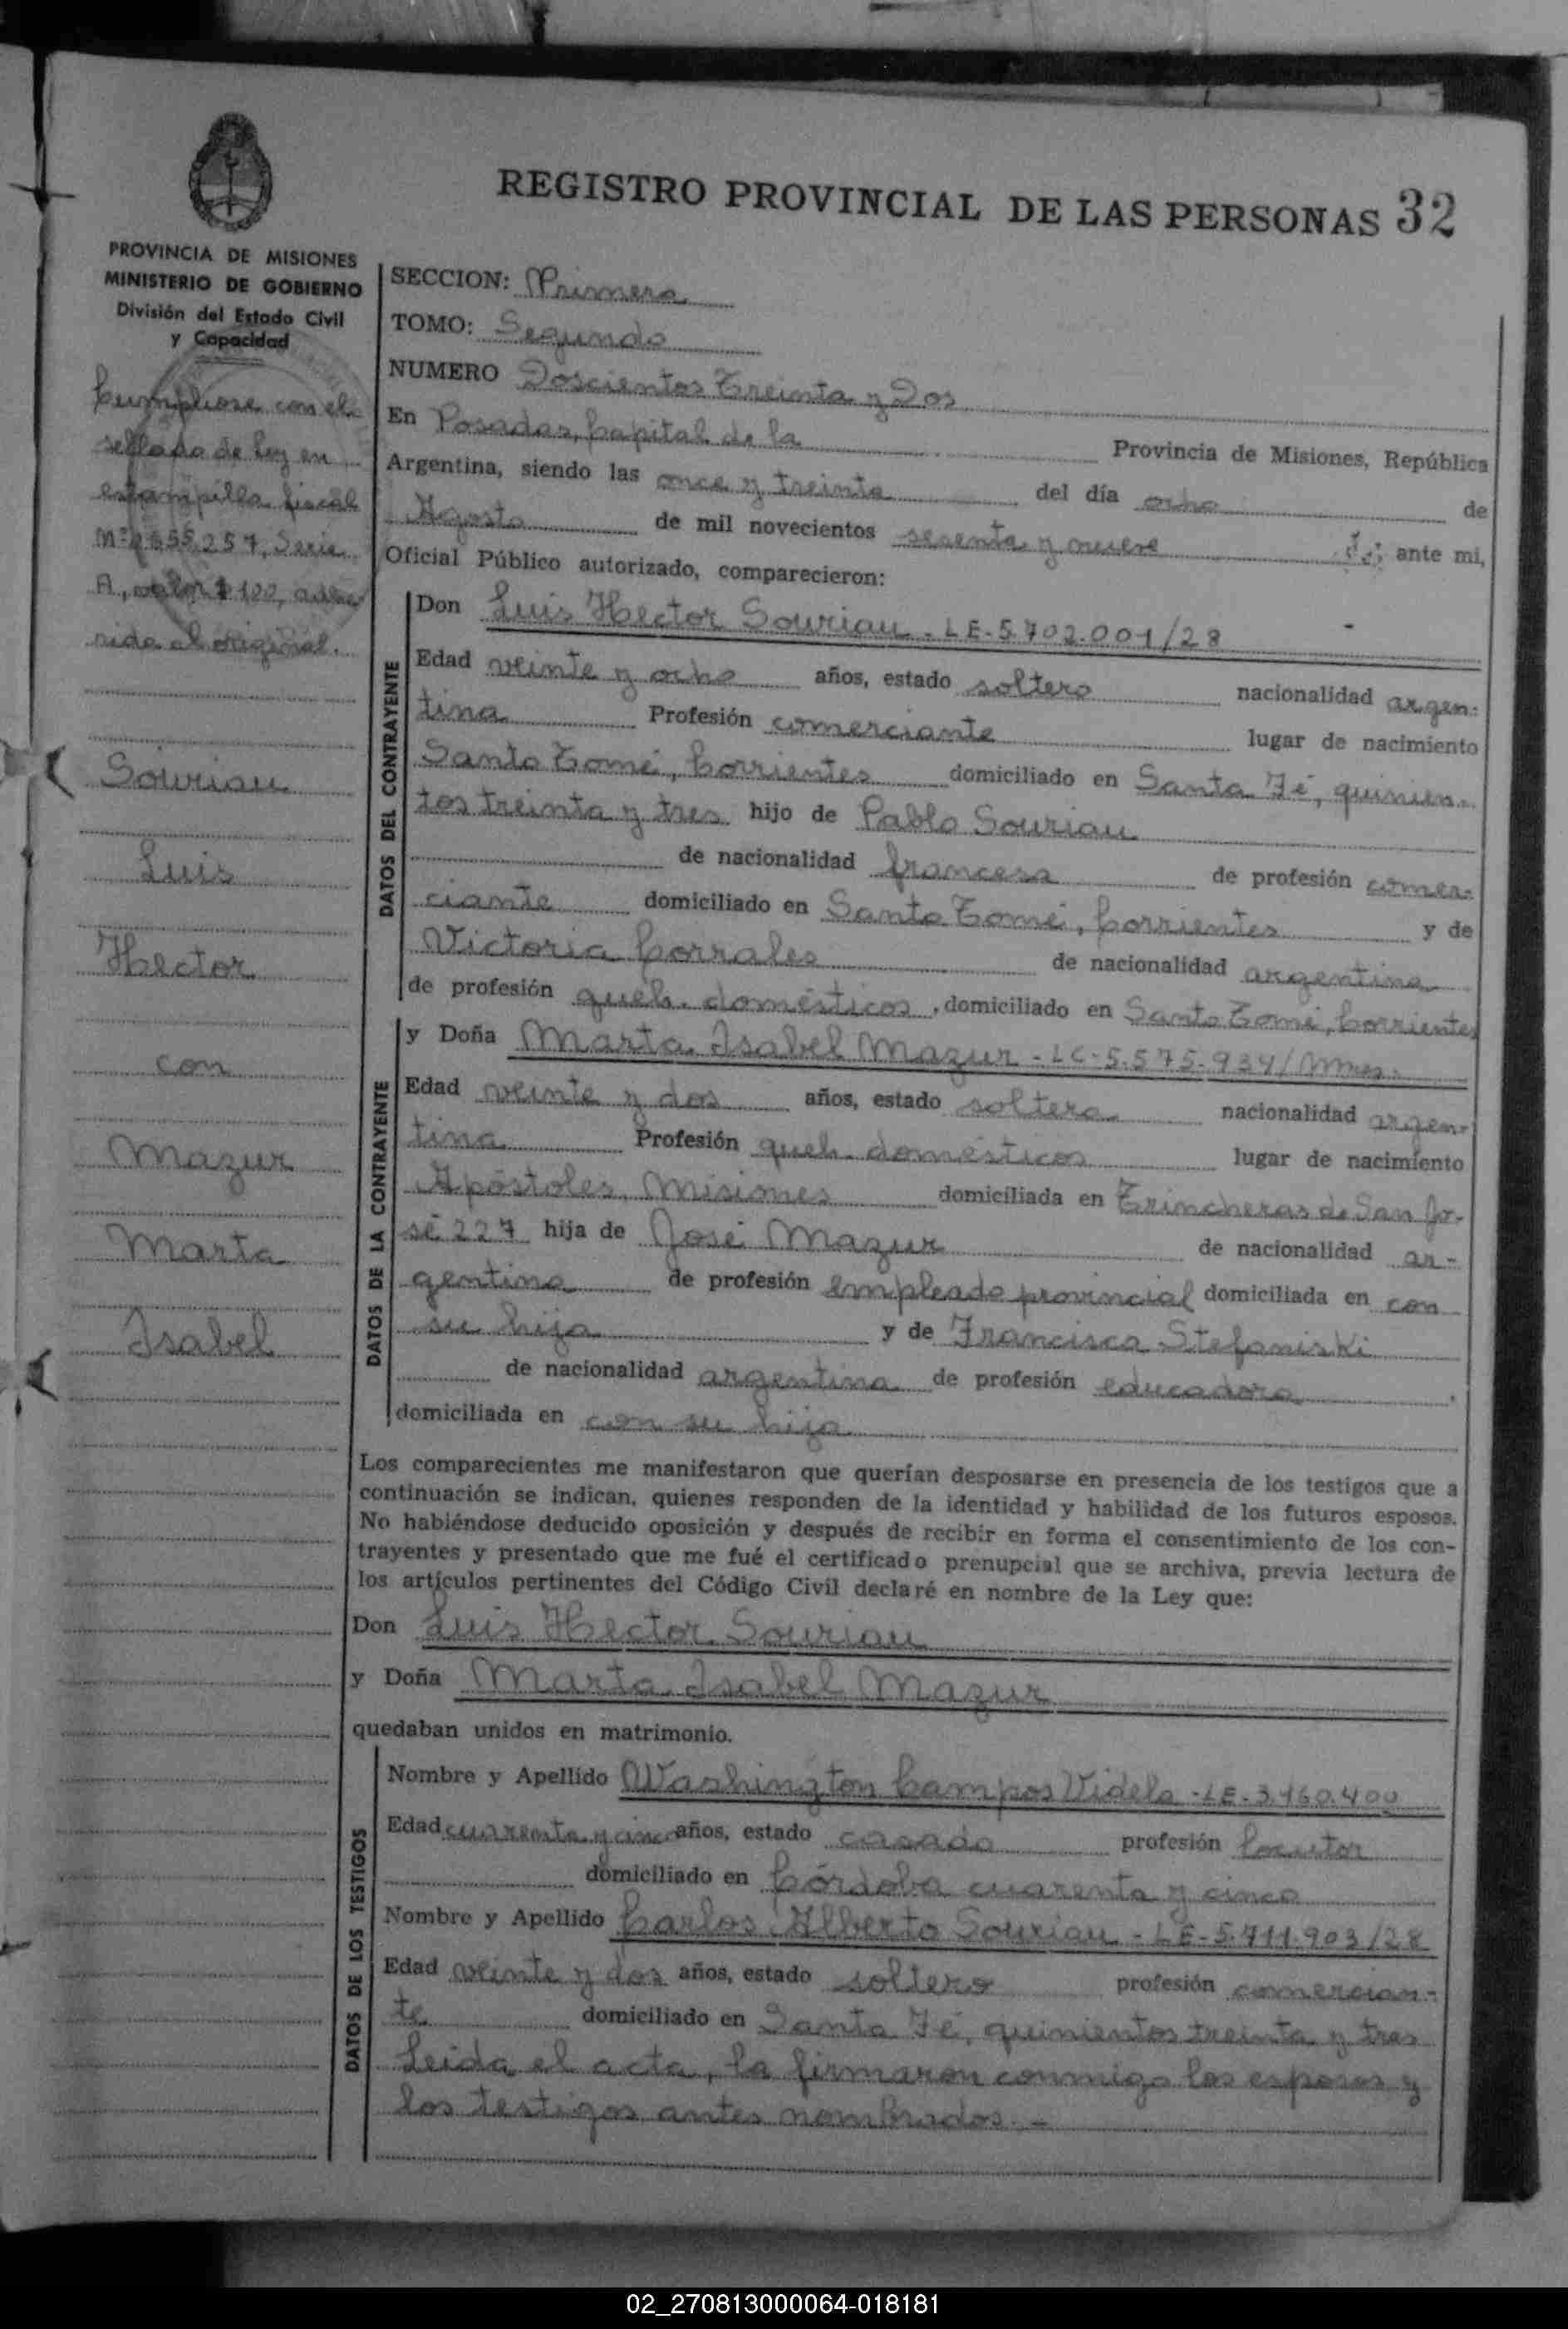 REGISTRO PROVINCIAL DE LAS PERSONAS 32
PROVINCIA DE MISIONES
MINISTERIO DE GOBIERNO
División del Estado Civil
y Capacidad
Cumpliose con el
sellado de ley en
estampilla fiscal
Serie
A, valor $ 100, adhe
rida al original.
Souriau
Luis
Hector
con
Mazur
Marta
Isabel
SECCION: Primera
TOMO: Segundo
NUMERO Doscientos Treinta y Dos
En Posadas, Capital de la Provincia de Misiones, República
Argentina, siendo las once y treinta del día ocho de
Agosto de mil novecientos sesenta y nueve ante mi,
Oficial Público autorizado, comparecieron:
DATOS DEL CONTRAYENTE
Don Luis Hector Souriau - LE-5.702.001/28
Edad veinte y ocho años, estado soltero nacionalidad argen-
tina Profesión comerciante lugar de nacimiento
Santo Tomé, Corrientes domiciliado en Santa Fé, quinien-
tos treinta y tres hijo de Pablo Souriau
de nacionalidad francesa de profesión comer-
ciante domiciliado en Santo Tomé, Corrientes y de
Victoria Corrales de nacionalidad argentina
de profesión queh. domésticos, domiciliado en Santo Tomé, Corrientes
DATOS DE LA CONTRAYENTE
y Doña Marta Isabel Mazur - LC-5.575.934/Mnes.
Edad veinte y dos años, estado soltera nacionalidad argen-
tina Profesión queh. domésticos lugar de nacimiento
Apóstoles, Misiones domiciliada en Trincheras de San Jo-
sé 227 hija de José Mazur de nacionalidad ar-
gentina de profesión empleado provincial domiciliada en con
su hija y de Francisca Stefaniski
de nacionalidad argentina de profesión educadora
domiciliada en con su hija
Los comparecientes me manifestaron que querían desposarse en presencia de los testigos que a
continuación se indican, quienes responden de la identidad y habilidad de los futuros esposos.
No habiéndose deducido oposición y después de recibir en forma el consentimiento de los con-
trayentes y presentado que me fué el certificado prenupcial que se archiva, previa lectura de
los artículos pertinentes del Código Civil declaré en nombre de la Ley que:
Don Luis Hector Souriau
y Doña Marta Isabel Mazur
quedaban unidos en matrimonio.
DATOS DE LOS TESTIGOS
Nombre y Apellido Washington Campos Videla - LE-3.160.400
Edad cuarenta y cinco años, estado casado profesión locutor
domiciliado en Córdoba cuarenta y cinco
Nombre y Apellido Carlos Alberto Souriau - LE-5.711.903/28
Edad veinte y dos años, estado soltero profesión comercian-
te domiciliado en Santa Fé, quinientos treinta y tres
Leida el acta, la firmaron conmigo los esposos y
los testigos antes nombrados.-
02_270813000064-018181